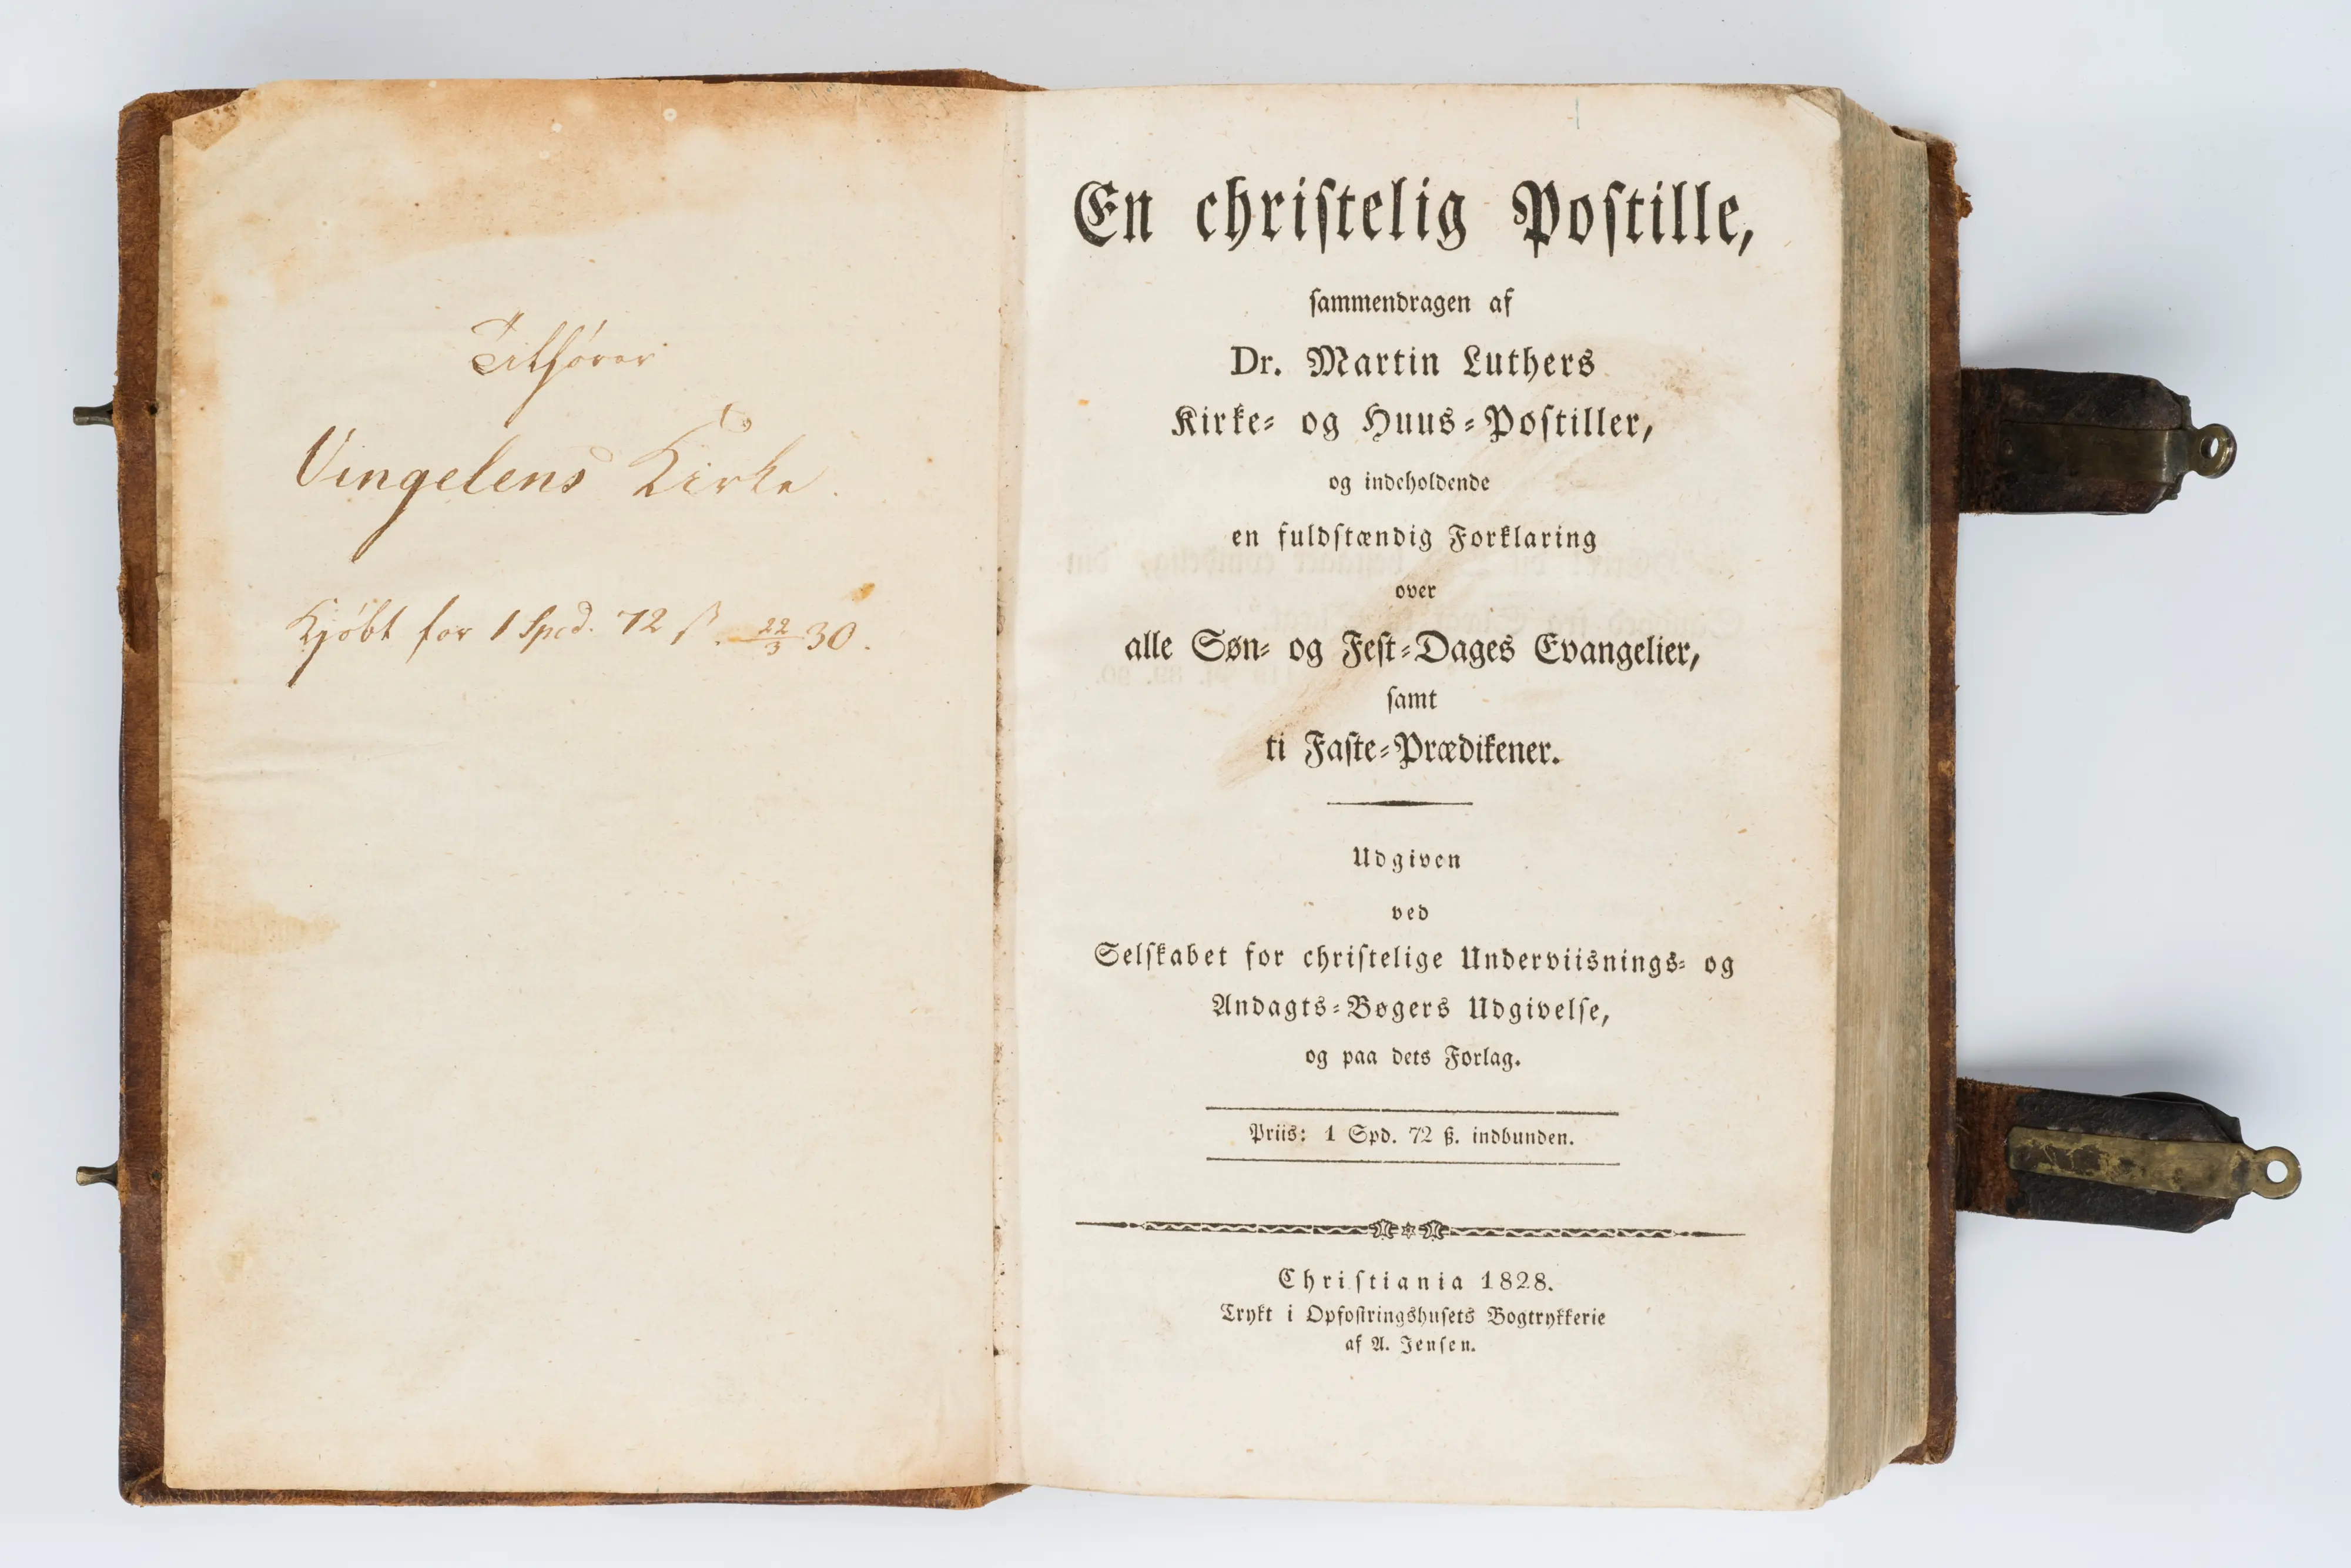 Tilhører
Vingelens Kirke.
Kjøbt for 1 Spcd. 72 ß. 22/3 30.
En chriſtelig Poſtille,
ſammendragen af
Dr. Martin Luthers
Kirke- og Huus-Poſtiller,
og indeholdende
en fuldſtændig Forklaring
over
alle Søn- og Feſt-Dages Evangelier,
ſamt
ti Faſte-Prædikener.
Udgiven
ved
Selſkabet for chriſtelige Underviisnings- og
Andagts-Bøgers Udgivelſe,
og paa dets Forlag.
Priis: 1 Spd. 72 ß. indbunden.
Chriſtiania 1828.
Trykt i Opfoſtringshuſets Bogtrykkerie
af A. Jenſen.